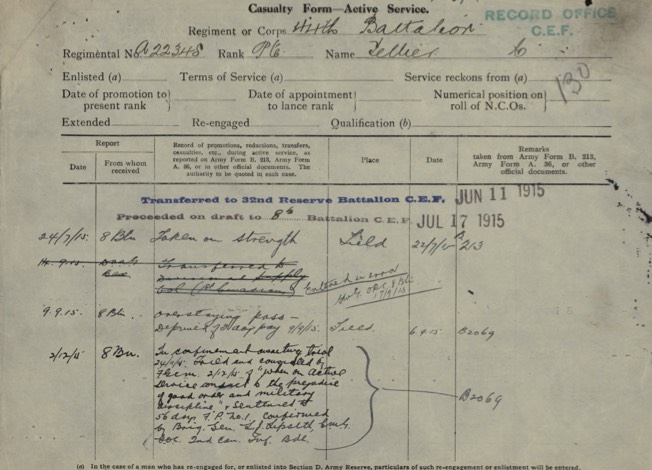 Casualty Form—Active Service.
RECORD OFFICE
C.E.F.
Regiment or Corps 44th Battalion
Regimental No. A22345 Rank Pte Name Tellier C
130
Enlisted (a) Terms of Service (a) Service reckons from (a)
Date of promotion to present rank Date of appointment to lance rank Numerical position on roll of N.C.Os.
Extended Re-engaged Qualification (b)
Report
Date From whom received
Record of promotions, reductions, transfers, casualties, etc., during active service, as reported on Army Form B. 213, Army Form A. 36, or in other official documents. The authority to be quoted in each case.
Place
Date
Remarks
taken from Army Form B. 213, Army Form A. 36, or other official documents.
Transferred to 32nd Reserve Battalion C.E.F. JUN 11 1915
Proceeded on draft to 8th Battalion C.E.F. JUL 17 1915
24/7/15. 8 Bln Taken on strength Field 22/7/15 213
9.15
Transferred to
Divisional Supply
Col (1st Canadian) Entered in error
8 Bln
17/9/15
9.9.15 8 Bln. overstaying pass—
Deprived of day pay 9/9/15. Field. 6.9.15 B2069
2/12/15 8 Bn. In confinement awaiting trial
24/11/15. Tried and convicted by
F.G.C.M. 2/12/15 of "When on Active
Service conduct to the prejudice
of good order and military
discipline" & Sentenced to
56 days F.P. No.1. Confirmed
by Brig. Gen. Lipsett Comdg
2nd Can. Inf. Bde.
B2069
(a) In the case of a man who has re-engaged for, or enlisted into Section D. Army Reserve, particulars of such re-engagement or enlistment will be entered.